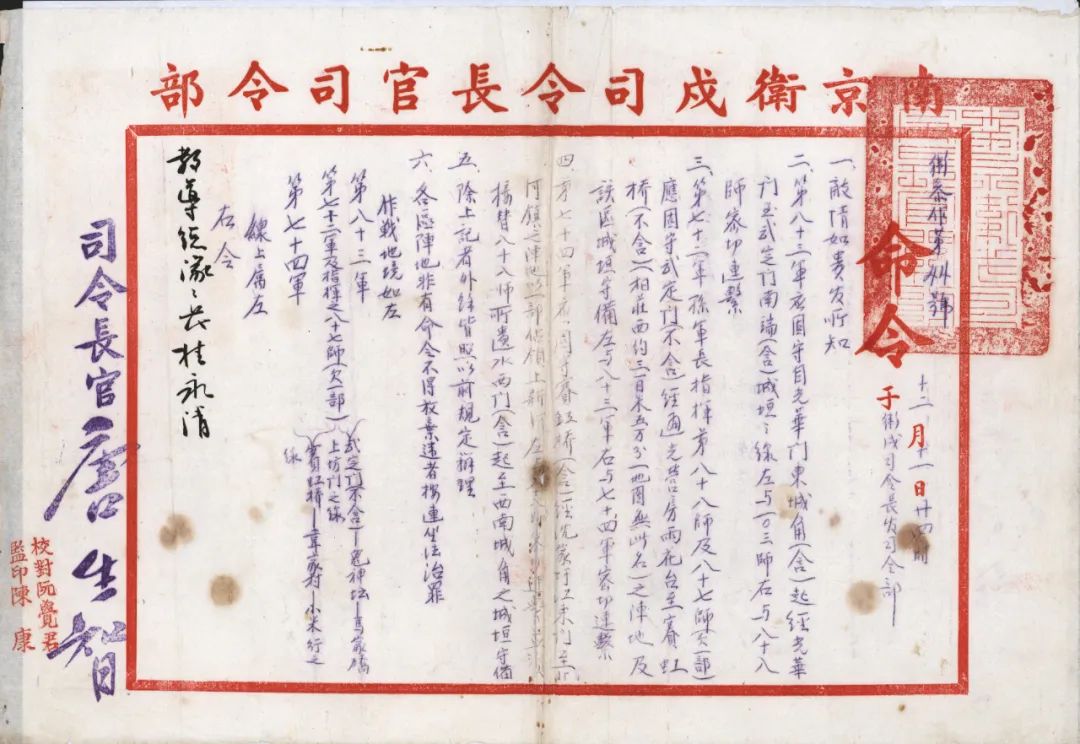 南京衛戍司令長官司令部
命令
十二月十一日廿四時
于衛戍司令長官司令部
衛參作第卅號
一、敵情如貴官所知
二、第八十三軍應固守自光華門東城角(含)起經光華
門至武定門南端(含)城垣之線左與一〇三師右與八十八
師密切連繫
三、第七十二軍孫軍長指揮第八十八師及八十七師(欠一部)
應固守武定門(不含)經通光營房雨花台至賽虹
桥(不含)(相莊西約三百米五万分一地圖無此名)之陣地及
該區城垣守備左与八十三軍右与七十四軍密切連繫
四、第七十四軍應固守賽虹桥(含)經沈家圩江東門至
河鎮之陣地以一部佔領上新河左
接替八十八師所遺水西門(含)起至西南城角之城垣守備
五、除上記者外餘皆照以前規定辦理
六、各區陣地非有命令不得放棄違者按連坐法治罪
作戰地境如左
第八十三軍
第七十二軍及指揮之八十七師(欠一部)
武定門(不含)—鬼神坛—高家橋
上坊門之線
第七十四軍
賽虹橋—韋家村—小米行之
線
線上屬左
右令
教導總隊隊長桂永清
司令長官唐生智
校對阮覺君
監印陳康